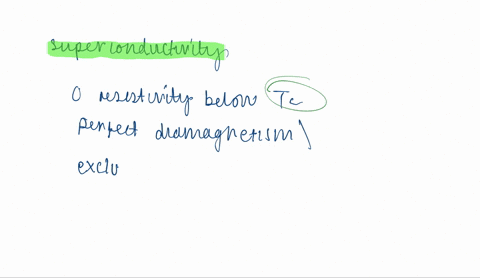 superconductivity
0 resistivity below Tc
perfect diamagnetism \
exclu